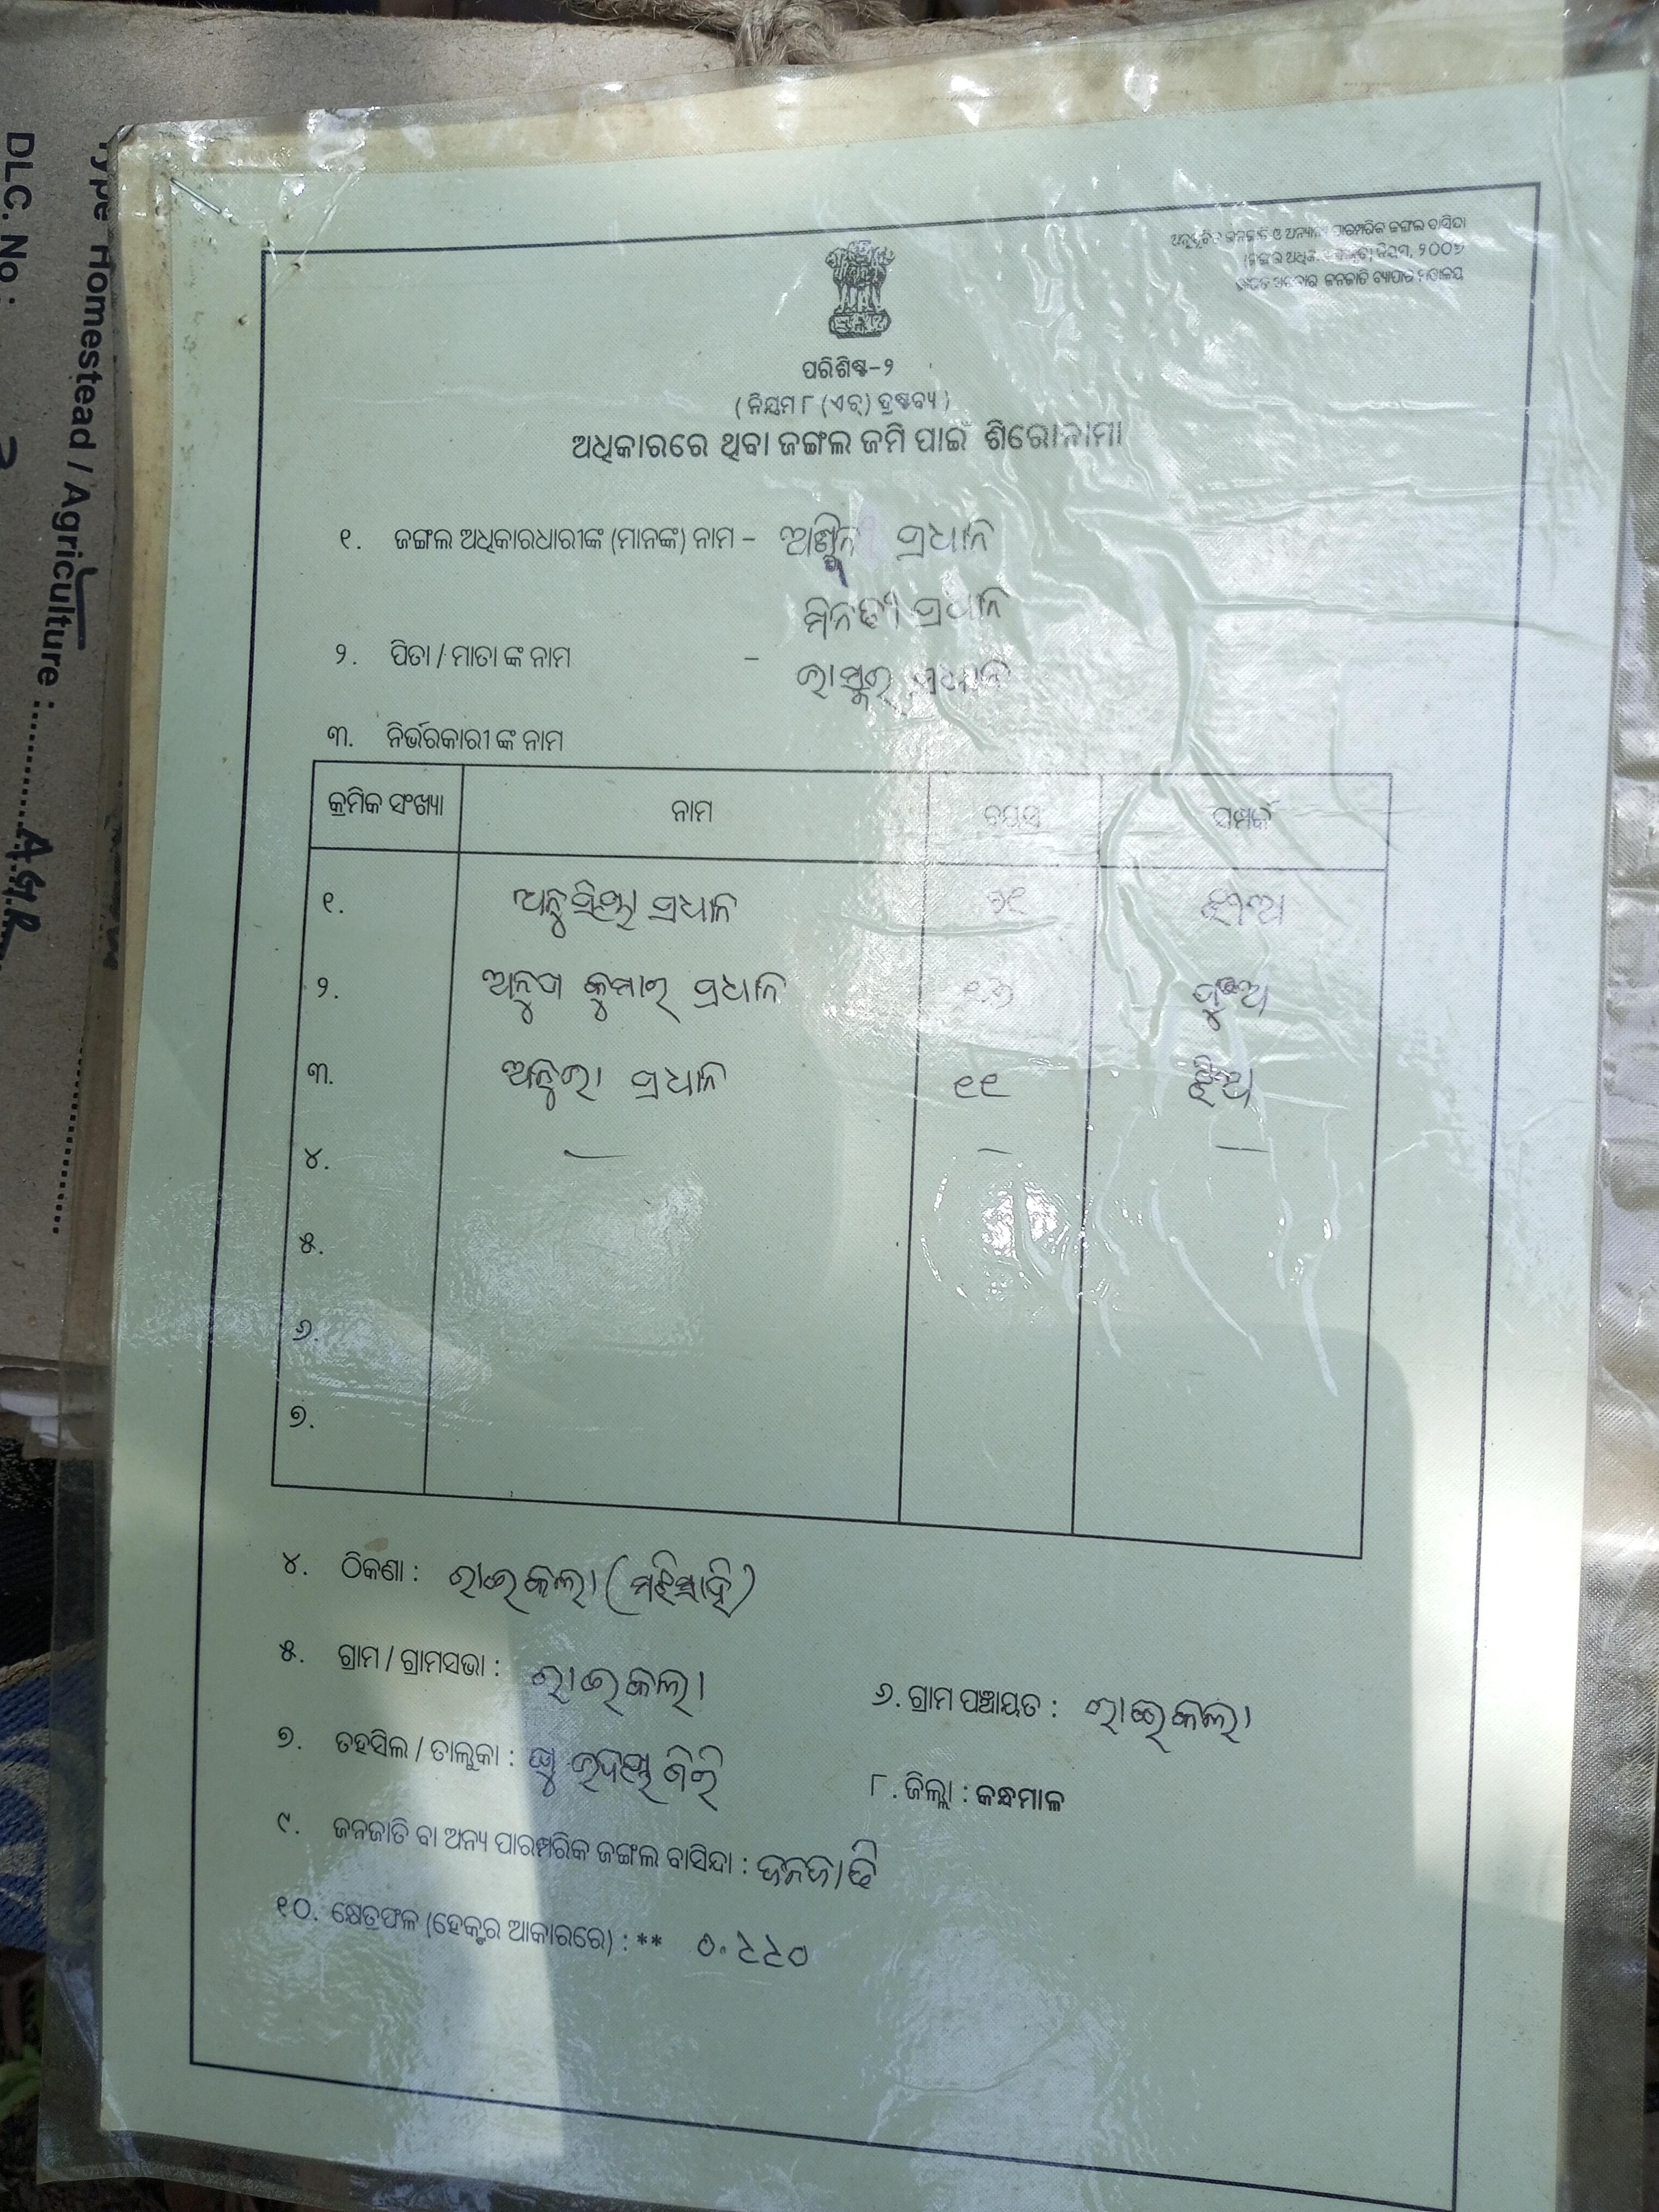 Type Homestead / Agriculture : A.G.R
DLC. No :
ଅନୁସୂଚିତ ଜନଜାତି ଓ ଅନ୍ୟାନ୍ୟ ପାରମ୍ପରିକ ଜଙ୍ଗଲ ବାସିନ୍ଦା
ନିୟମ, ୨୦୦୭
ଭାରତ ସରକାର ଜନଜାତି ବ୍ୟାପାର ମନ୍ତ୍ରାଳୟ
ପରିଶିଷ୍ଟ-୨
( ନିୟମ ୮ (ଏଚ୍) ଦ୍ରଷ୍ଟବ୍ୟ )
ଅଧିକାରରେ ଥିବା ଜଙ୍ଗଲ ଜମି ପାଇଁ ଶିରୋନାମା
୧. ଜଙ୍ଗଲ ଅଧିକାରଧାରୀଙ୍କ (ମାନଙ୍କ) ନାମ - ପ୍ରଧାନ
ମିନତୀ ପ୍ରଧାନ
୨. ପିତା / ମାତା ଙ୍କ ନାମ - ପ୍ରଧାନ
୩. ନିର୍ଭରକାରୀ ଙ୍କ ନାମ
କ୍ରମିକ ସଂଖ୍ୟା ନାମ ବୟସ ସମ୍ପର୍କ
୧. ପ୍ରଧାନ ଝିଅ
୨. ଅନୁପ କୁମାର ପ୍ରଧାନ ପୁଅ
୩. ଅନୁରା ପ୍ରଧାନ ୧୧ ଝିଅ
୪. — — —
୫.
୬.
୭.
୪. ଠିକଣା : ରାଇକଲା (ମଝିସାହି)
୫. ଗ୍ରାମ / ଗ୍ରାମସଭା : ରାଇକଲା
୬. ଗ୍ରାମ ପଞ୍ଚାୟତ : ରାଇକଲା
୭. ତହସିଲ / ତାଲୁକା : ଉଦୟଗିରି
୮. ଜିଲ୍ଲା : କନ୍ଧମାଳ
୯. ଜନଜାତି ବା ଅନ୍ୟ ପାରମ୍ପରିକ ଜଙ୍ଗଲ ବାସିନ୍ଦା : ଜନଜାତି
୧୦. କ୍ଷେତ୍ରଫଳ (ହେକ୍ଟର ଆକାରରେ) : ** ୦.୨୨୦